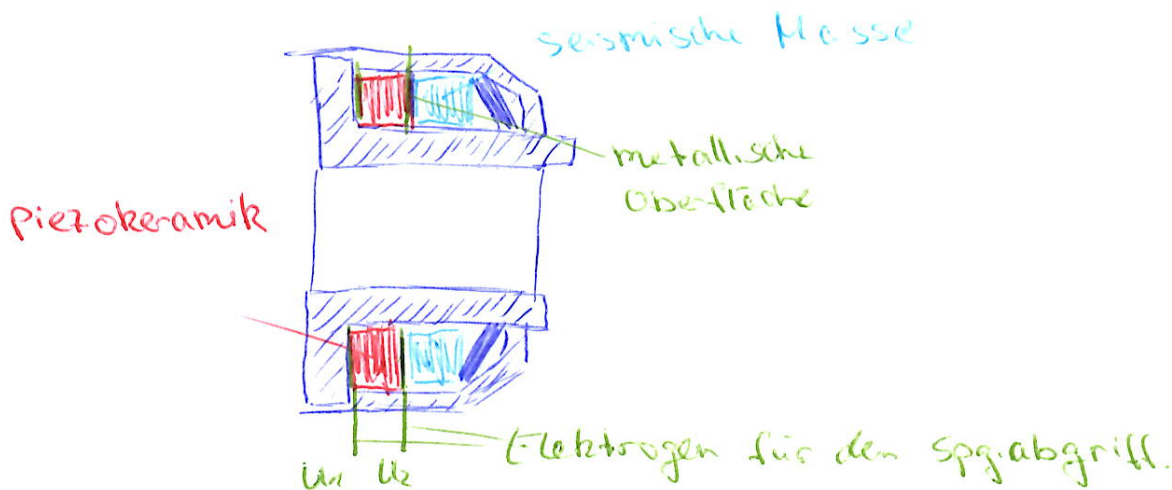 seismische Masse
metallische
Oberfläche
Piezokeramik
Elektrogen für den Spg.abgriff.
U₁ U₂